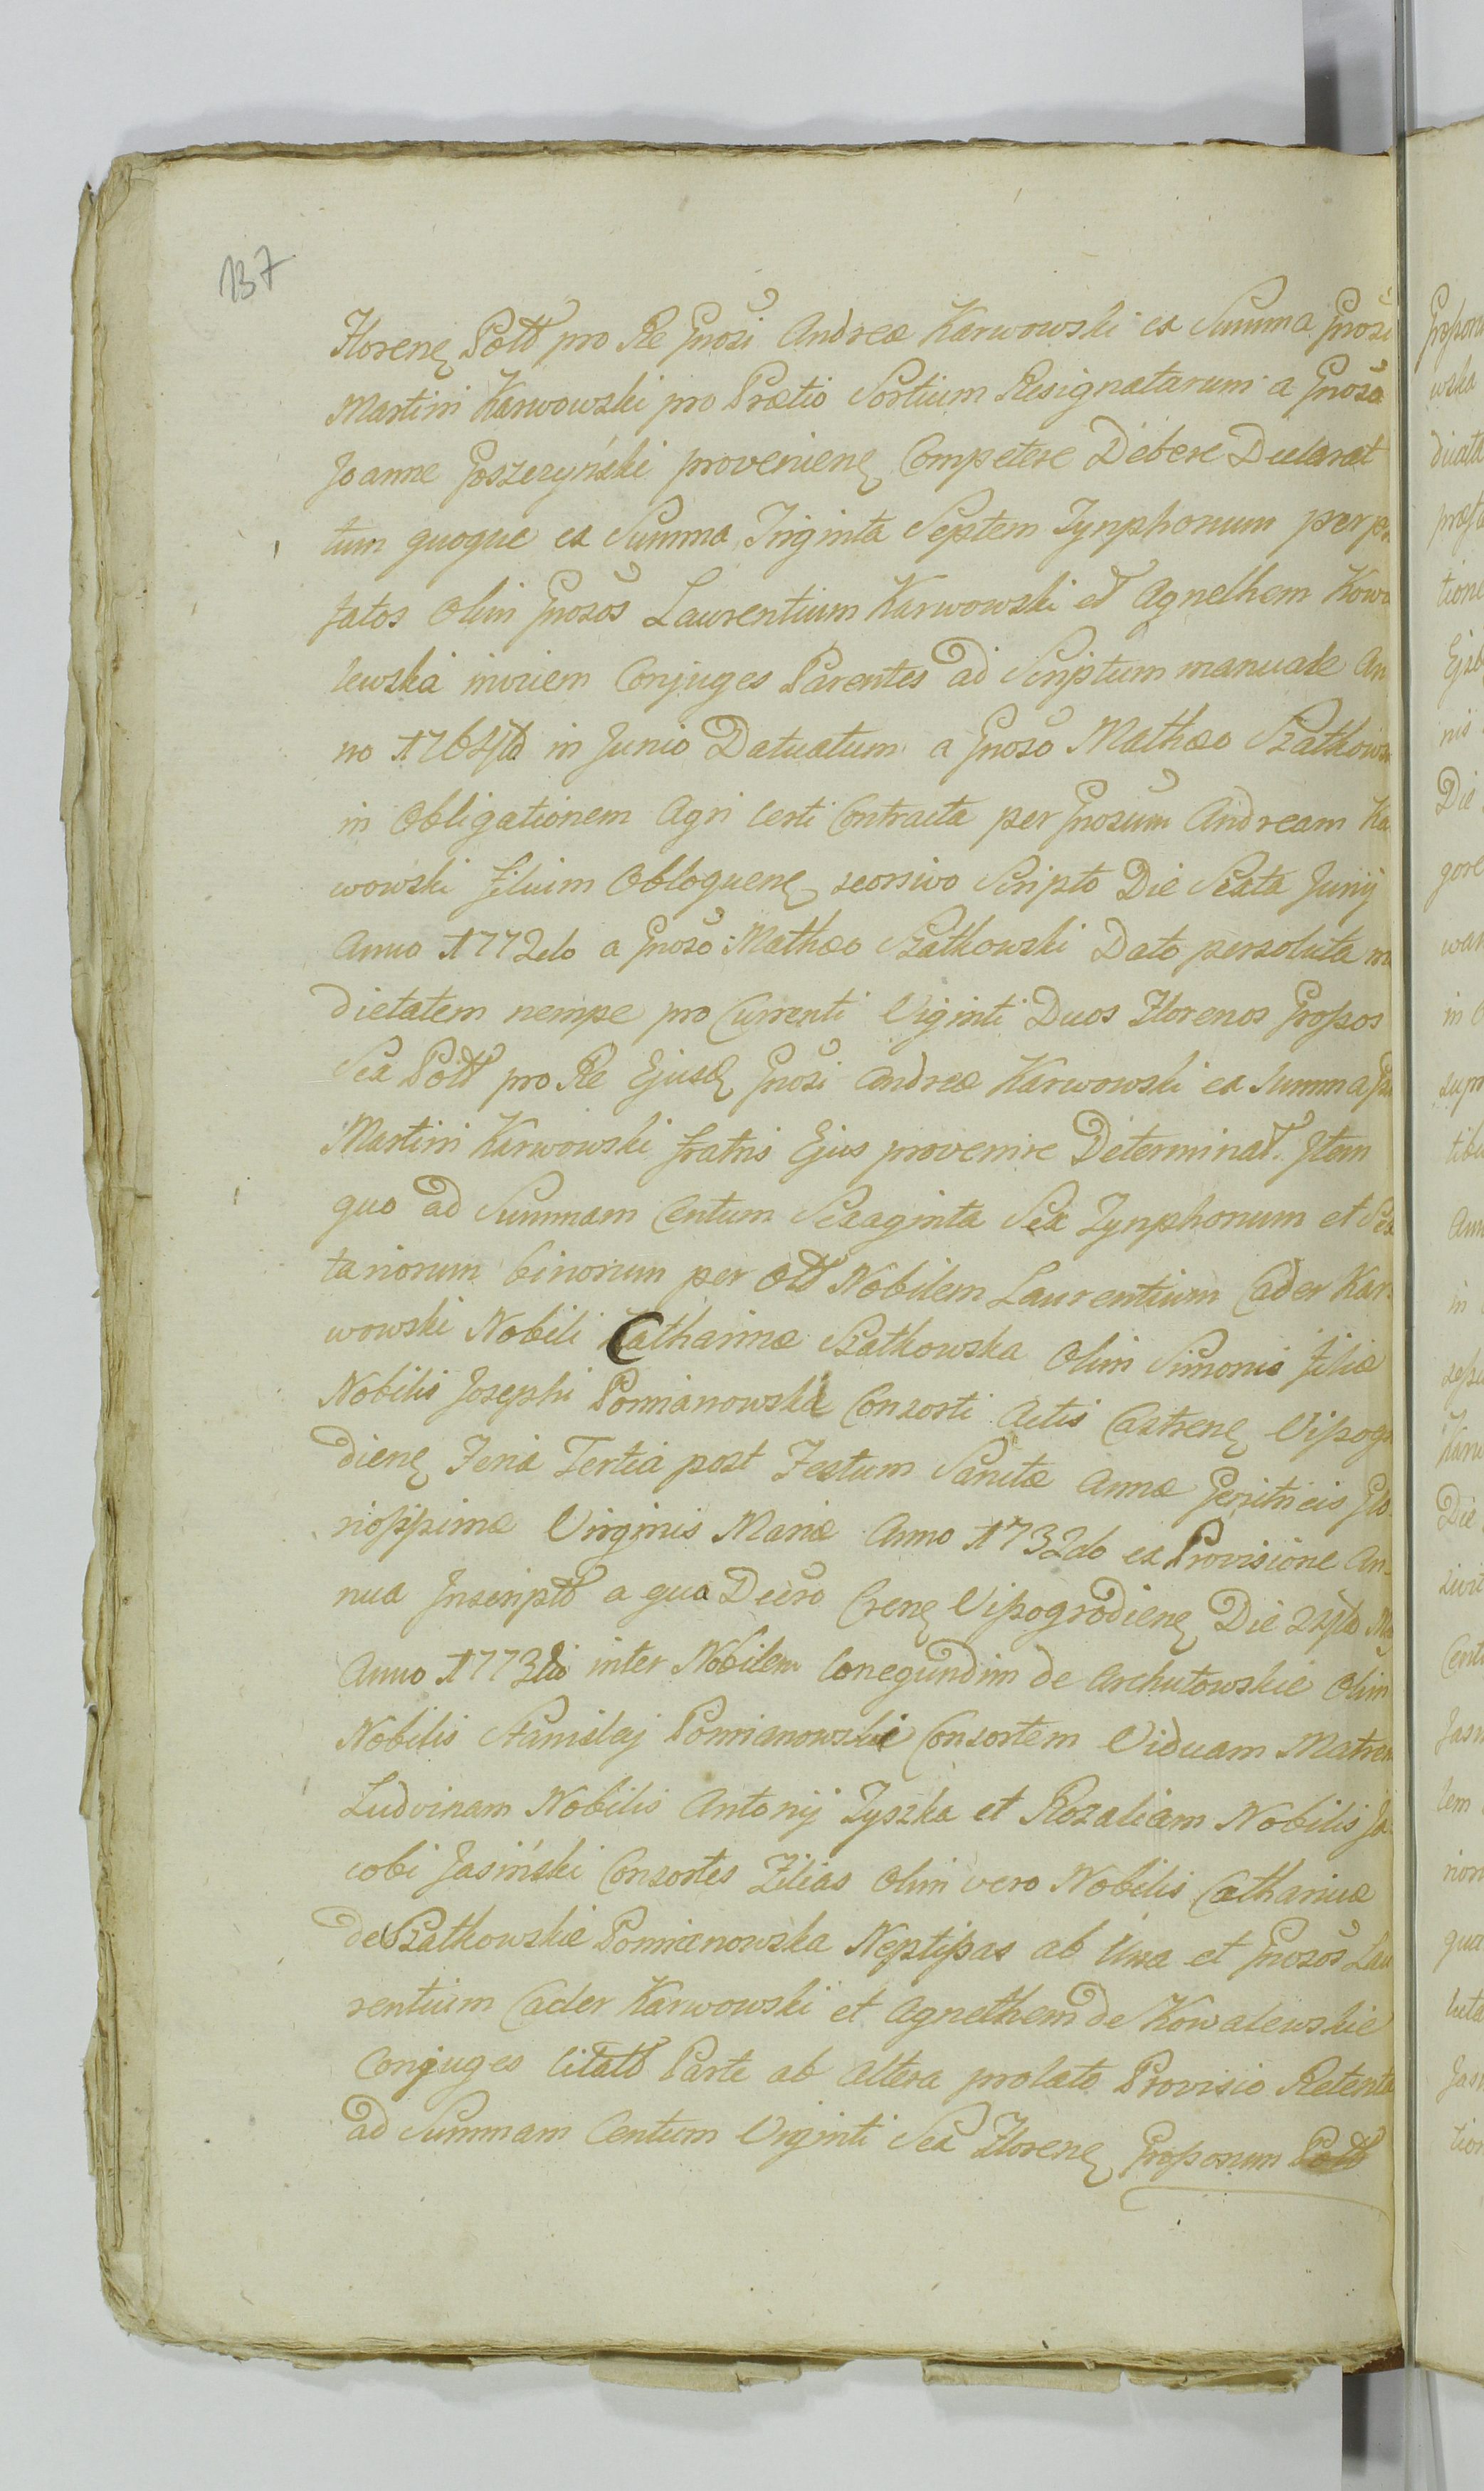 137
Floreng Potld pro Re Gnosi Andreæ Karwowski ex Summa Gnosi
Martini Karwowski pro Prætio Sortium Resignatarum a Gnoso
Joanne Goszczyński provenieng Competere Debere Declarat
tum quoque ex Summa Triginta Septem Tynphonum per
fatos Olim Gnosos Laurentium Karwowski et Agnetham Kowa
lewska invicem Conjuges Parentes ad Scriptum manuale An
no 1764to in Junio Datuatum a Gnoso Mathæo Szatkowski
in Obligationem Agri Certi Contracta per Gnosum Andream Kar
wowski filium Obloqueng recorsivo Scripto Die Sexta Junij
Anno 1772do a Gnoso Mathæo Szatkowski Dato persoluta me
dietatem nempe pro Currenti Viginti Duos Florenos Grossos
Sex Potld pro Re Ejusd Gnosi Andreæ Karwowski ex Summa
Martini Karwowski fratris Ejus provenire Determinat. Item
quo ad Summam Centum Sexaginta Sex Tynphonum et Sex
tariorum binorum per Old Nobilem Laurentium Cader Kar
wowski Nobili Catharinæ Szatkowska Olim Simonis filiæ
Nobilis Josephi Pomianowski Consorti Actis Castreng Vissogro
dieng Feria Tertia post Festum Sanctæ Annæ Genitricis Glo
riosissimæ Virginis Mariæ Anno 1732do ex Provisione An
nua Inscriptd a qua Decro Creng Vissogrodieng Die
Anno 1773tio inter Nobilem Conegundim de Archutowskie Olim
Nobilis Stanislaj Pomianowski Consortem Viduam Matrem
Ludvinam Nobilis Antonij Tyszka et Rozaliam Nobilis Ja
cobi Jasiński Consortes Filias Olim vero Nobilis Catharinæ
de Szatkowskie Pomianowska Neptissas ab Una et Gnosos Lau
rentium Cader Karwowski et Agnethem de Kowalewskie
Conjuges Citatd Parte ab altera prolato Provisio Retenta
ad Summam Centum Viginti Sex Floreng Grossorum Potld